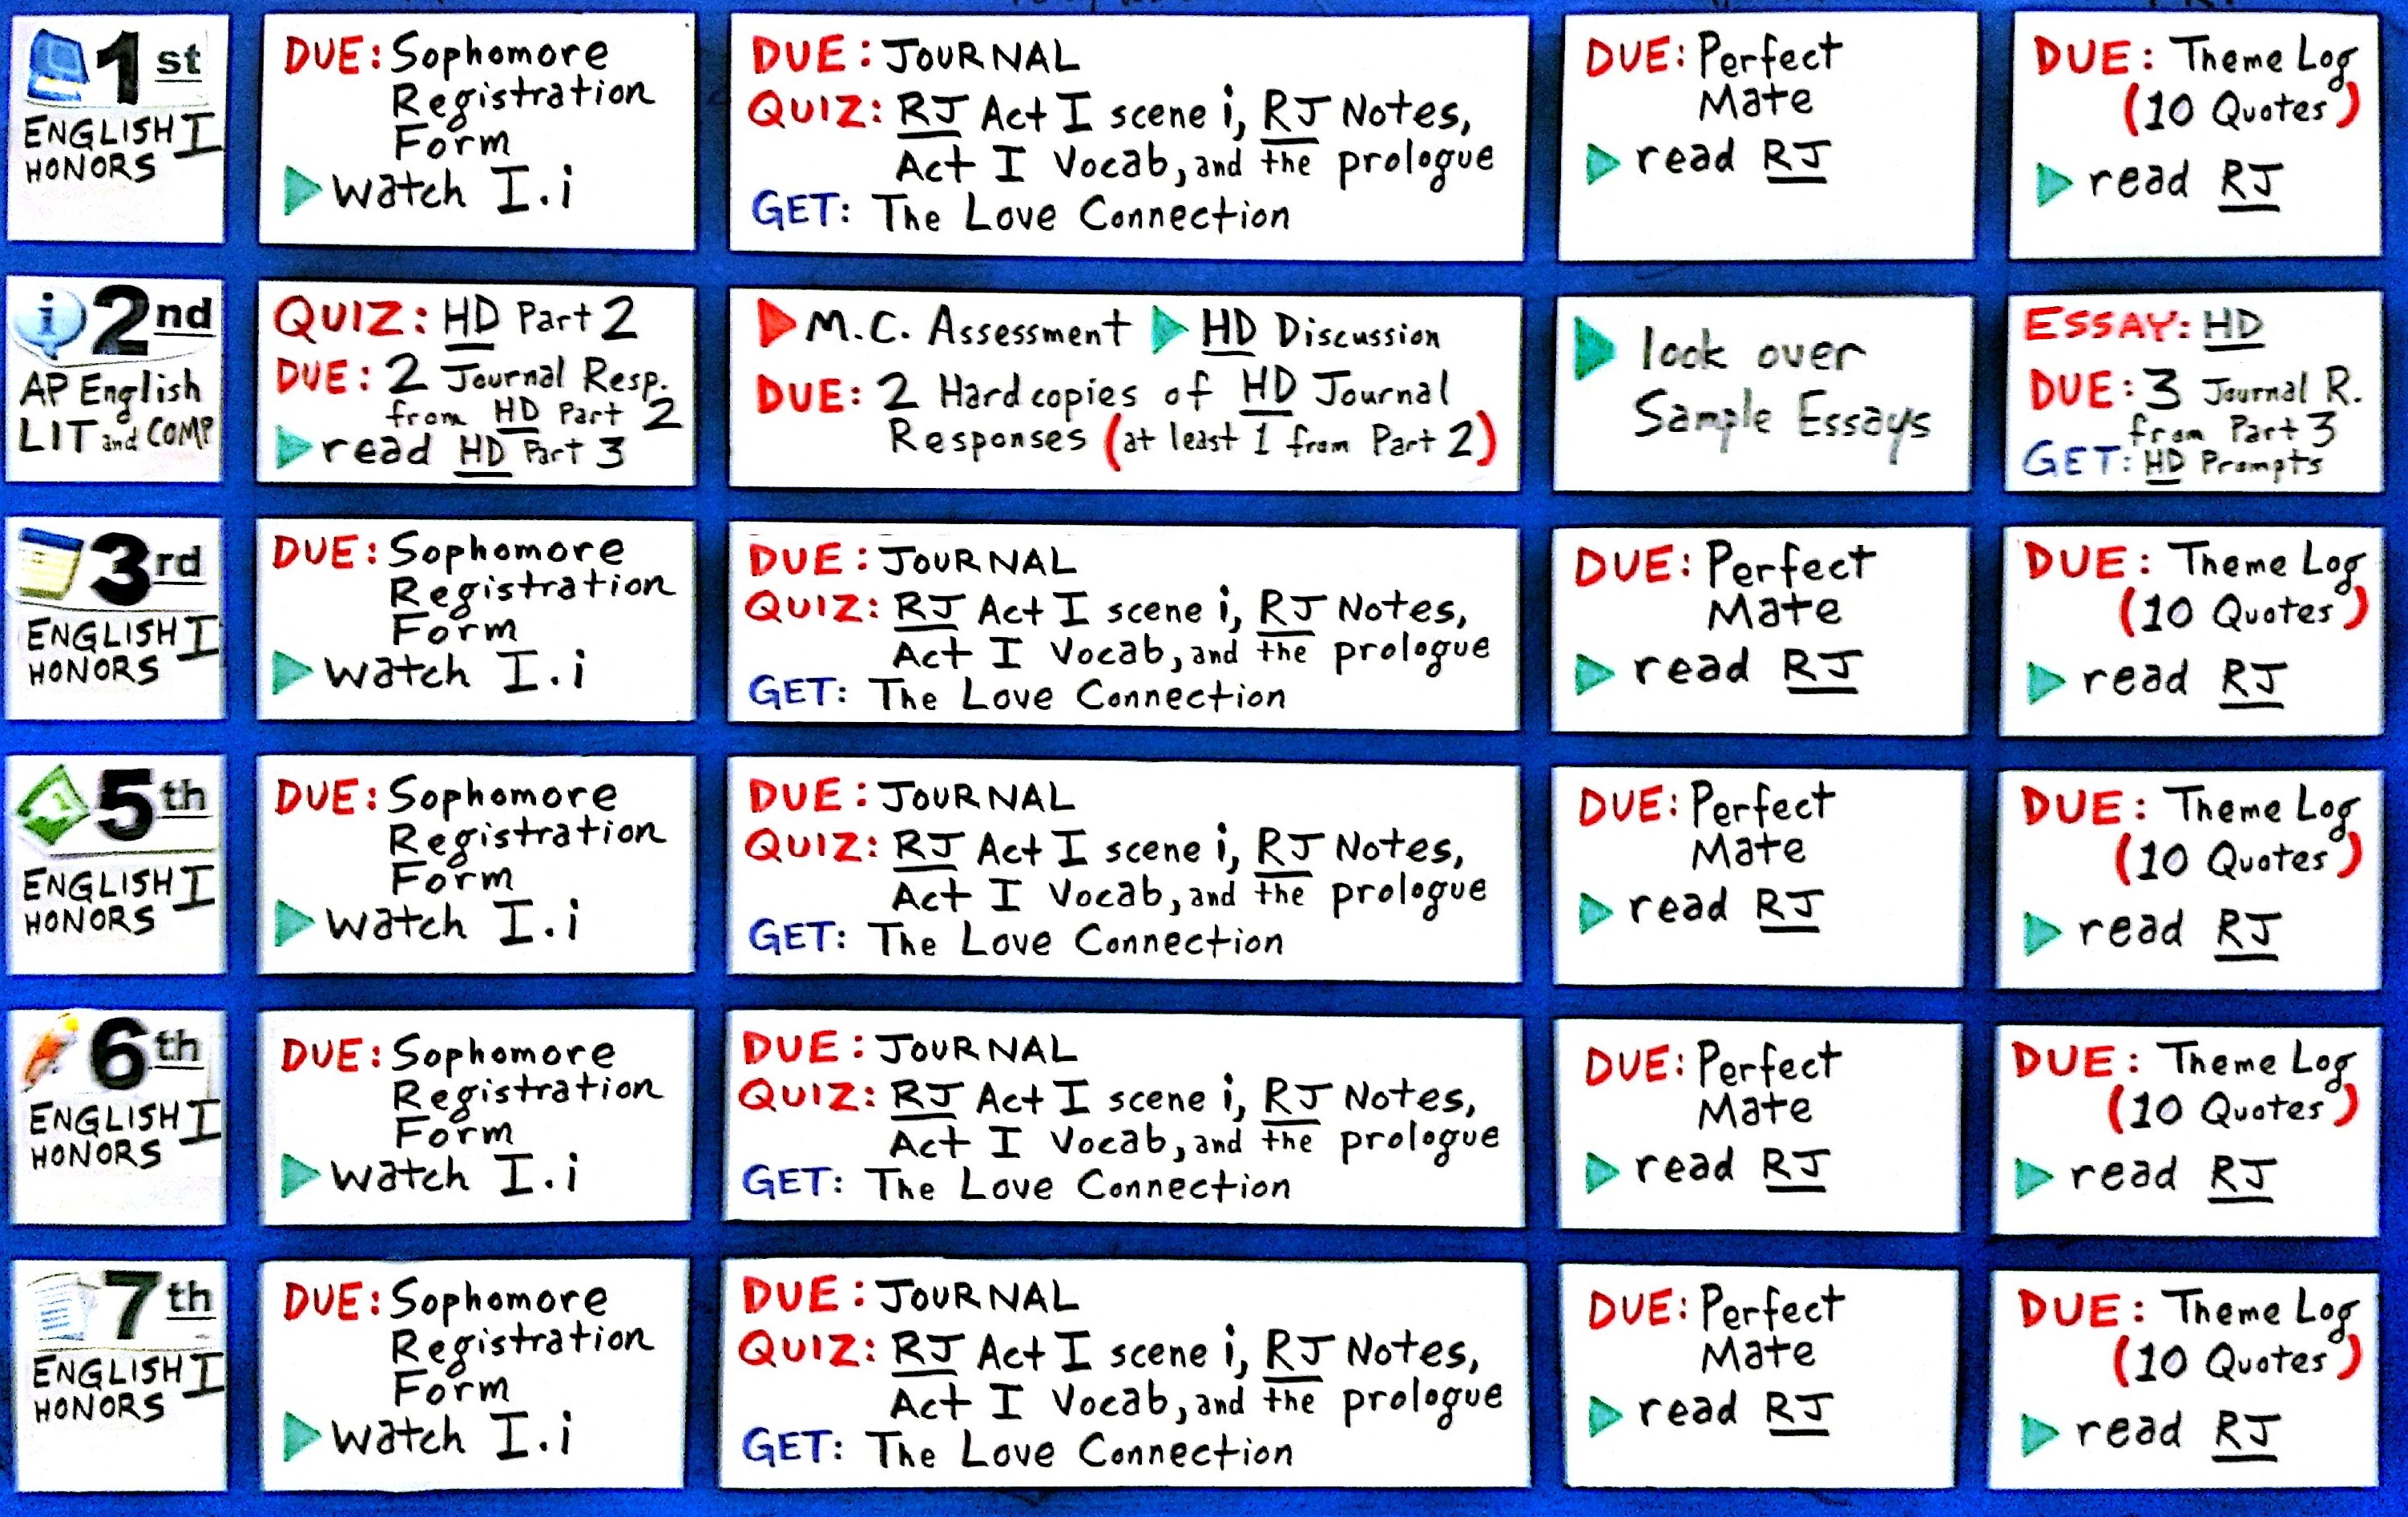 1st
ENGLISH I
HONORS
DUE: Sophomore
Registration
Form
watch I.i
DUE: JOURNAL
QUIZ: RJ Act I scene i, RJ Notes,
Act I Vocab, and the prologue
GET: The Love Connection
DUE: Perfect
Mate
read RJ
DUE: Theme Log
(10 Quotes)
read RJ
2nd
AP English
LIT and COMP
QUIZ: HD Part 2
DUE: 2 Journal Resp.
from HD Part 2
read HD Part 3
M.C. Assessment HD Discussion
DUE: 2 Hardcopies of HD Journal
Responses (at least 1 from Part 2)
look over
Sample Essays
ESSAY: HD
DUE: 3 Journal R.
from Part 3
GET: HD Prompts
3rd
ENGLISH I
HONORS
DUE: Sophomore
Registration
Form
watch I.i
DUE: JOURNAL
QUIZ: RJ Act I scene i, RJ Notes,
Act I Vocab, and the prologue
GET: The Love Connection
DUE: Perfect
Mate
read RJ
DUE: Theme Log
(10 Quotes)
read RJ
5th
ENGLISH I
HONORS
DUE: Sophomore
Registration
Form
watch I.i
DUE: JOURNAL
QUIZ: RJ Act I scene i, RJ Notes,
Act I Vocab, and the prologue
GET: The Love Connection
DUE: Perfect
Mate
read RJ
DUE: Theme Log
(10 Quotes)
read RJ
6th
ENGLISH I
HONORS
DUE: Sophomore
Registration
Form
watch I.i
DUE: JOURNAL
QUIZ: RJ Act I scene i, RJ Notes,
Act I Vocab, and the prologue
GET: The Love Connection
DUE: Perfect
Mate
read RJ
DUE: Theme Log
(10 Quotes)
read RJ
7th
ENGLISH I
HONORS
DUE: Sophomore
Registration
Form
watch I.i
DUE: JOURNAL
QUIZ: RJ Act I scene i, RJ Notes,
Act I Vocab, and the prologue
GET: The Love Connection
DUE: Perfect
Mate
read RJ
DUE: Theme Log
(10 Quotes)
read RJ